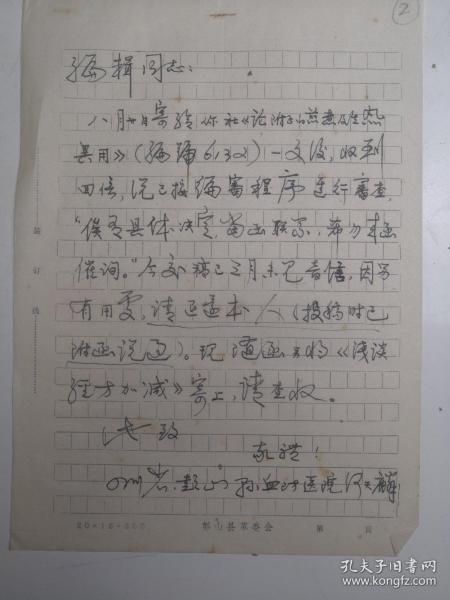 2
编辑同志：
八月廿日寄给你社《论附子的煎煮及生熟
异用》（编号6302）一文后，收到
回信，说已按编审程序进行审查，
“俟有具体决定，当函联系，希勿来函
催询。”今交稿已三月未见音信，因另
有用要，请退还本人（投稿时已
附函说过）。现随函另将《浅谈
经方加减》寄上，请查收。
此致
敬礼！
四川省彭山县血防医院
20×15=300
彭山县革委会
第 页
装订线
孔夫子旧书网